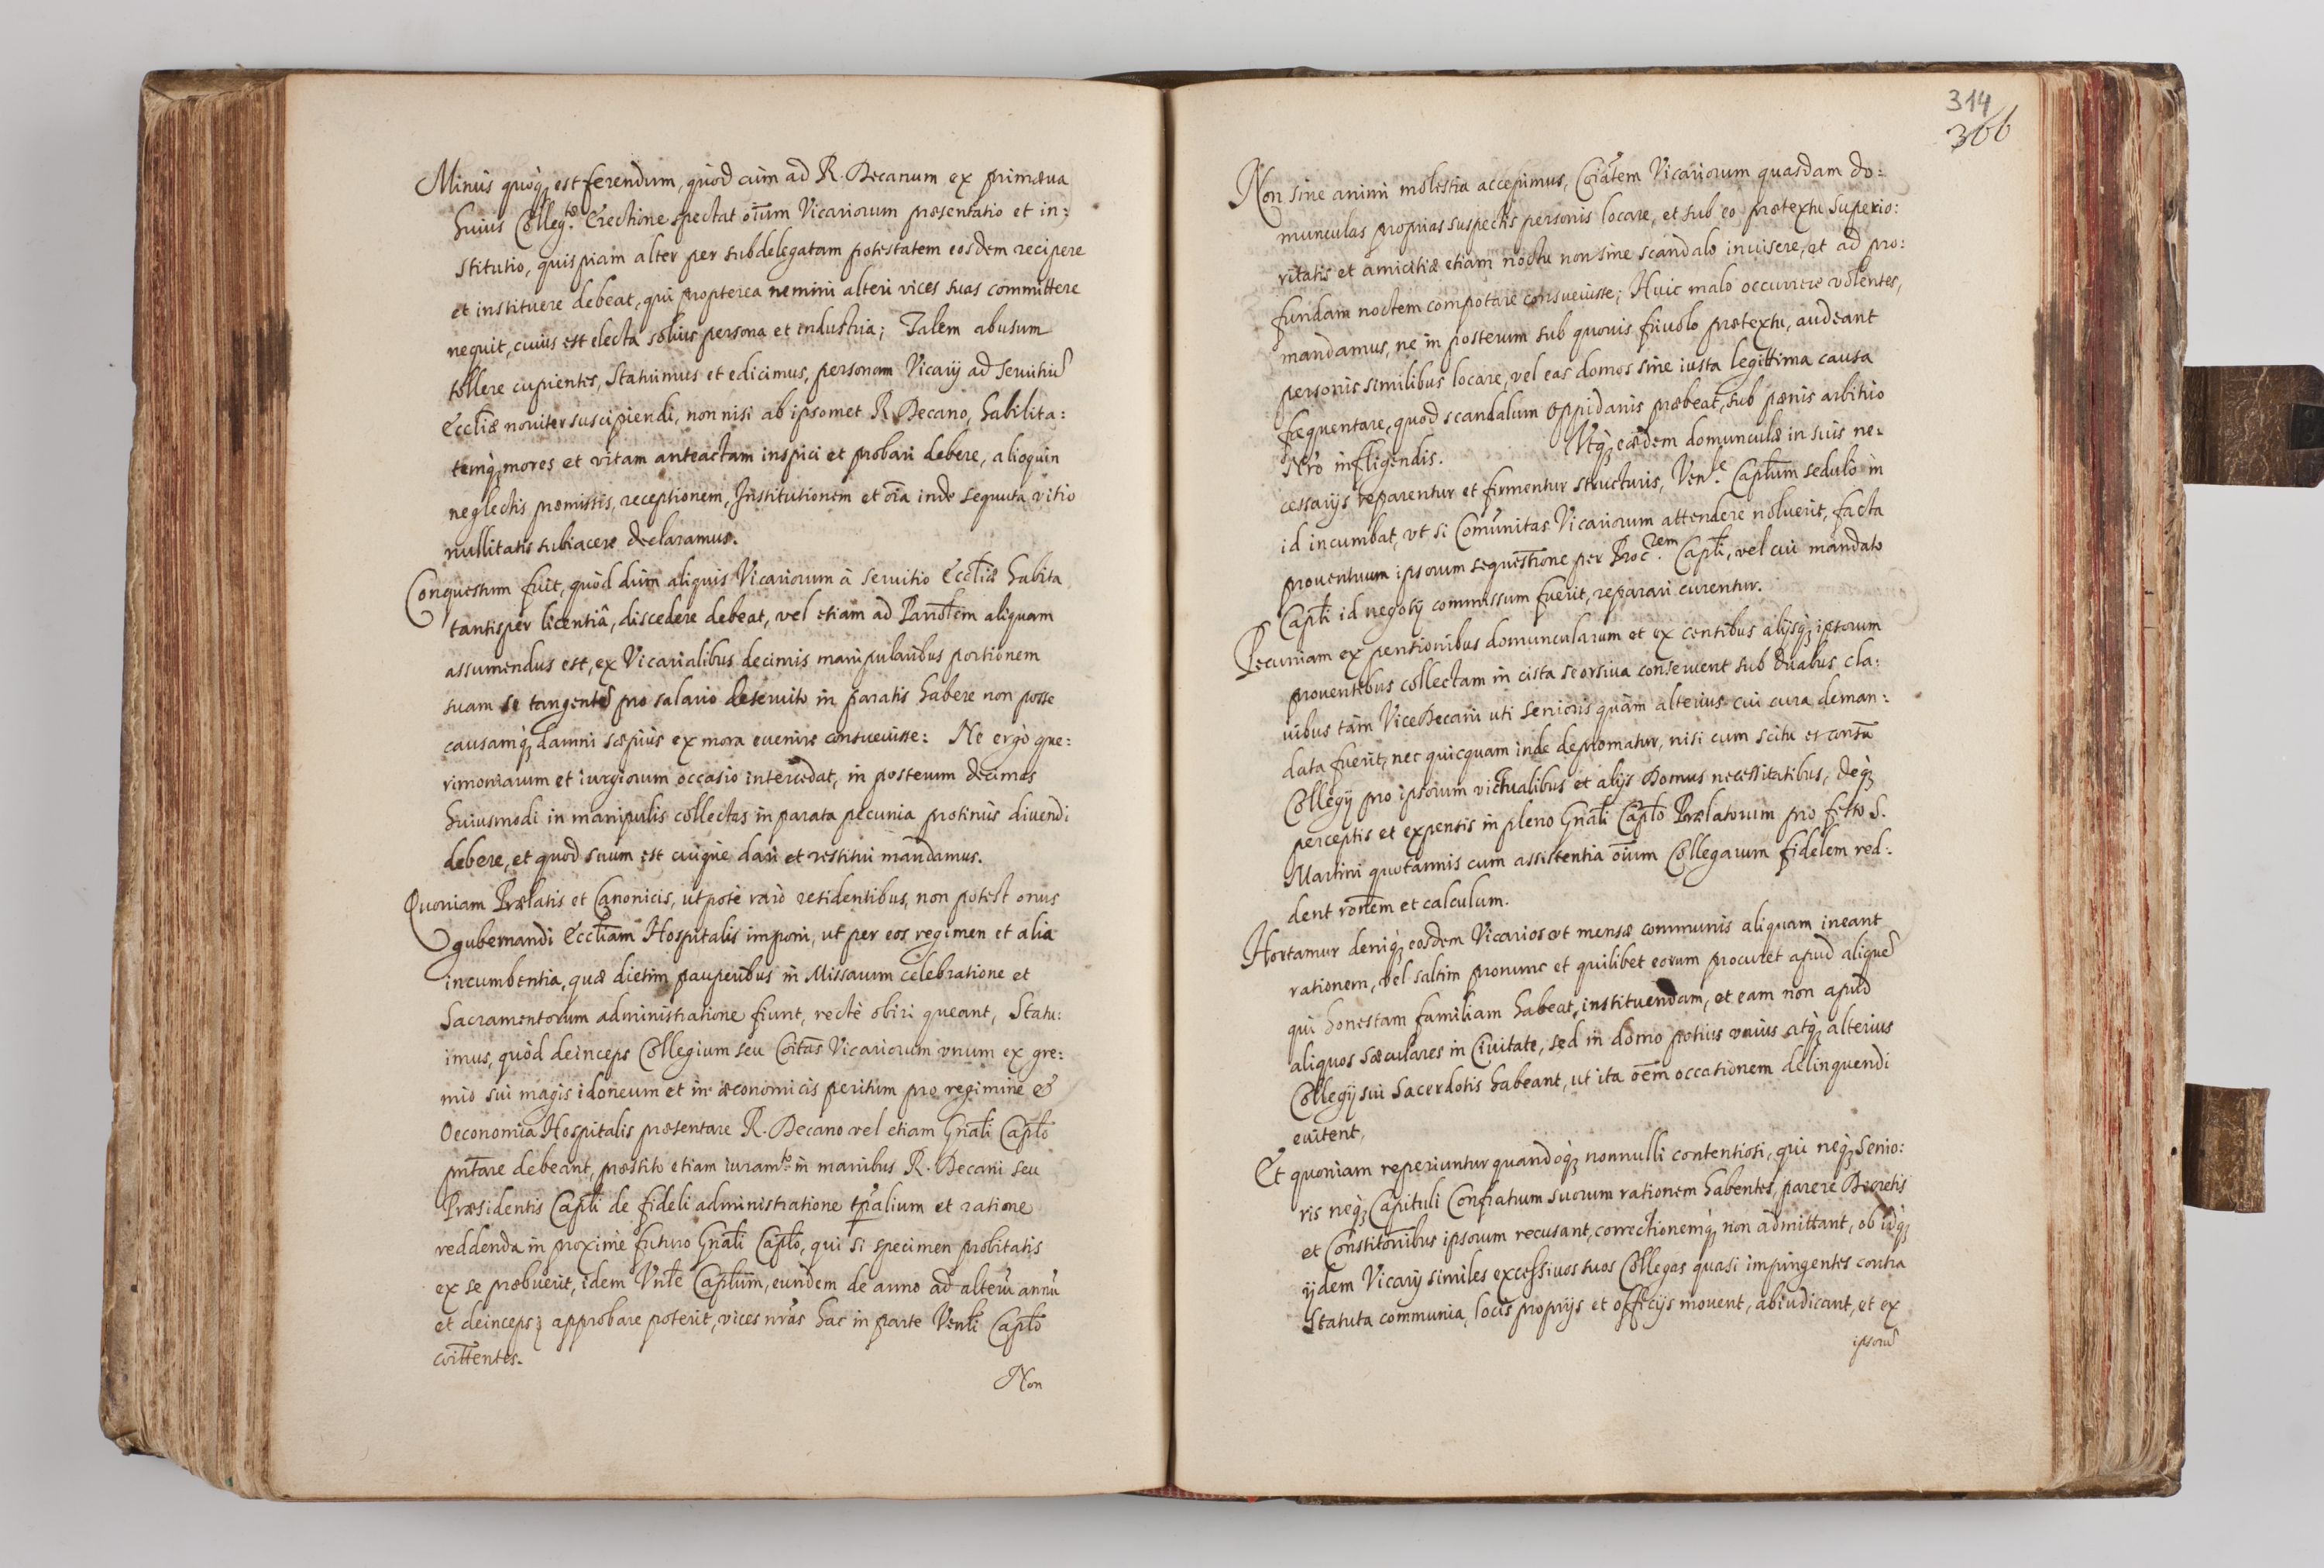 Minus quoq₃ est ferendum, quod cùm ad R. Decanum ex primæua
huius Colleg.tæ Erectione spectat oīum Vicariorum præsentatio et in:
stitutio, quispiam alter per subdelegatam potestatem eosdem recipere
et instituere debeat, qui propterea nemini alteri vices suas committere
nequit, cuius est electa solius persona et industria; Talem abusum
tollere cupientes, Statuimus et edicimus, personam Vicarij ad seruitiũ
Eccłiæ nouiter suscipiendi, non nisi ab ipsomet R. Decano, habilita:
temq₃ mores et vitam anteactam inspici et probari debere, alioquin
neglectis præmissis, receptionem, Institutionem et oīa inde sequuta vitio
nullitatis subiacere declaramus.
Conquestum fuit, quòd dùm aliquis Vicariorum à seruitio Eccłiæ habita
tantisper licentiâ, discedere debeat, vel etiam ad Parołēm aliquam
assumendus est, ex Vicarialibus decimis manipularibus portionem
suam se tangentẽ pro salario deseruito in paratis habere non posse
causamq₃ damni sæpius ex mora euenire consueuisse: Ne ergò que:
rimoniarum et iurgiorum occasio intercedat, in posterum decimas
huiusmodi in manipulis collectas in parata pecunia protinùs diuendi
debere, et quod suum est cuique dari et restitui mandamus.
Quoniam Prælatis et Canonicis, utpotè rarò residentibus, non potest onus
gubernandi Eccłiam Hospitalis imponi, ut per eos regimen et alia
incumbentia, quæ dietim pauperibus in Missarum celebratione et
Sacramentorum administratione fiunt, rectè obiri queant, Statu:
imus, quòd deinceps Collegium seu Coītas Vicariorum vnum ex gre:
mio sui magis idoneum et in œconomicis peritum pro regimine &
Oeconomia Hospitalis præsentare R. Decano vel etiam Gnałi Capło
pnt̃are debeant, præstito etiam iuram.to in manibus R. Decani seu
Præsidentis Capłi de fideli administratione tp̃alium et ratione
reddenda in proximè futuro Gnałi Capło, qui si specimen probitatis
ex se præbuerit, idem Vnłe Capłum, eundem de anno ad alterũ annũ
et deinceps; approbare poterit, vices nr̃as hac in parte Venłi Capło
coīttentes.
Non
314
366
Non sine animi molestia accepimus, Coīatem Vicariorum quasdam do:
munculas proprias suspectis personis locare, et sub eo prætextu superio:
ritatis et amicitiæ etiam noctu non sine scandalo inuisere, et ad pro:
fundam noctem compotare consueuisse; Huic malo occurrere volentes,
mandamus, ne in posterum sub quouis friuolo prætextu, audeant
personis similibus locare, vel eas domos sine iusta legittima causa
frequentare, quod scandalum Oppidanis præbeat, sub pœnis arbitrio
Nr̃o infligendis. Vtq₃ eædem domunculæ in suis ne:
cessarijs reparentur et firmentur structuris, Ven.le Capłum sedulò in
id incumbat, vt si Com̃unitas Vicariorum attendere noluerit, facta
prouentuum ipsorum sequest̃ione per Proc.rem Capłi, vel cui mandato
Capłi id negotij commissum fuerit, reparari curentur.
Pecuniam ex pensionibus domuncularum et ex censibus alijsq₃ ipsorum
prouentibus collectam in cista seorsiua conseruent sub duabus cla:
uibus tàm ViceDecani uti Senioris quàm alterius cui cura deman:
data fuerit, nec quicquam inde depromatur, nisi cum scitu et consũ
Collegij pro ipsorum victualibus et alijs Domus necessitatibus, deq₃
perceptis et expensis in pleno Gnałi Capło Prælatorum pro festo S.
Martini quotannis cum assistentia oīum Collegarum fidelem red:
dent roñem et calculum.
Hortamur deniq₃ eosdem Vicarios ut mensæ communis aliquam ineant
rationem, vel saltim pronunc et quilibet eorum procuret apud aliquẽ
qui honestam familiam habeat, instituendam, et eam non apud
aliquos sæculares in Ciuitate, sed in domo potius vnius atq₃ alterius
Collegij sui Sacerdotis habeant, ut ita oēm occasionem delinquendi
euitent,
Et quoniam reperiuntur quandoq₃ nonnulli contentiosi, qui neq₃ Senio:
ris neq₃ Capituli Confratrum suorum rationem habentes, parere Decretis
et Constitoñibus ipsorum recusant, correctionemq₃ non admittant, ob idq₃
ijdem Vicarij similes excessiuos suos Collegas quasi impingentes contra
Statuta communia, locis proprijs et officijs mouent, abiudicant, et ex
ipsorũ